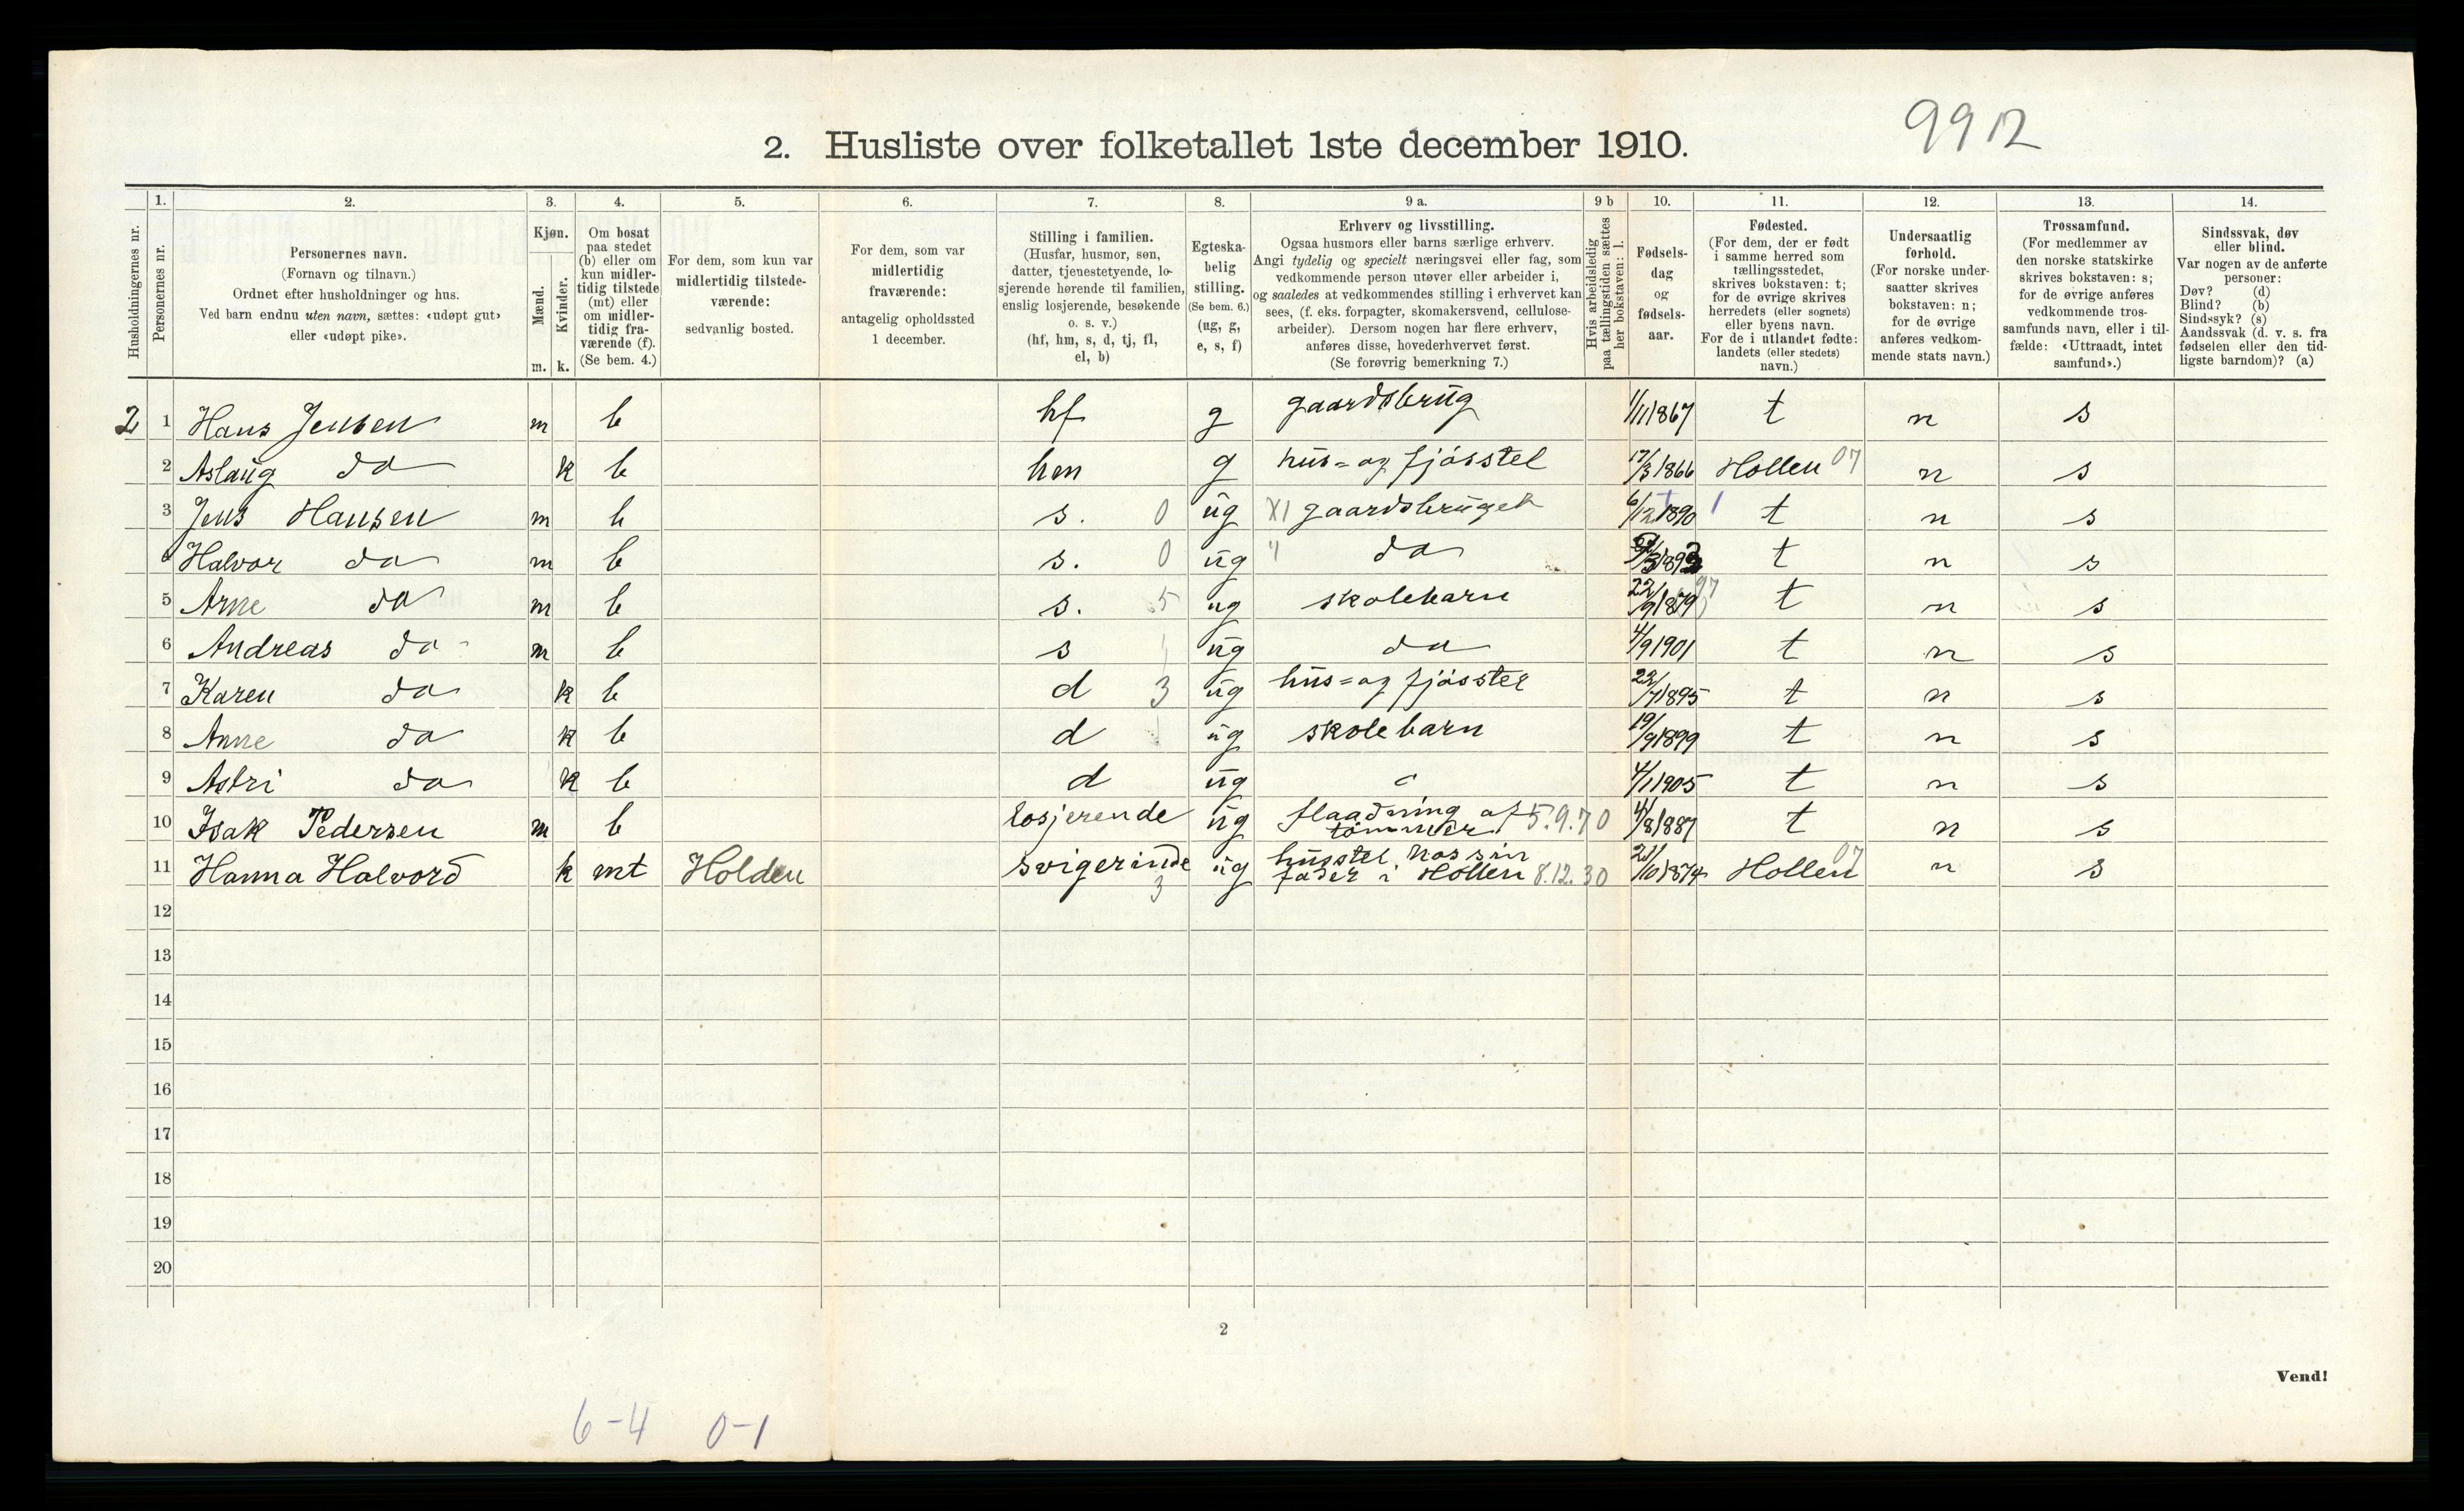 9912
2. Husliste over folketallet 1ste december 1910.
Husholdningernes nr.
1. Personernes nr.
2. Personernes navn. (Fornavn og tilnavn.) Ordnet efter husholdninger og hus. Ved barn endnu uten navn, sættes: «udøpt gut» eller «udøpt pike».
3. Kjøn. Mænd. m. Kvinder. k.
4. Om bosat paa stedet (b) eller om kun midlertidig tilstede (mt) eller om midlertidig fraværende (f). (Se bem. 4.)
5. For dem, som kun var midlertidig tilstedeværende: sedvanlig bosted.
6. For dem, som var midlertidig fraværende: antagelig opholdssted 1 december.
7. Stilling i familien. (Husfar, husmor, søn, datter, tjenestetyende, losjerende hørende til familien, enslig losjerende, besøkende o. s. v.) (hf, hm, s, d, tj, fl, el, b)
8. Egteskabelig stilling. (Se bem. 6.) (ug, g, e, s, f)
9 a. Erhverv og livsstilling. Ogsaa husmors eller barns særlige erhverv. Angi tydelig og specielt næringsvei eller fag, som vedkommende person utøver eller arbeider i, og saaledes at vedkommendes stilling i erhvervet kan sees, (f. eks. forpagter, skomakersvend, cellulosearbeider). Dersom nogen har flere erhverv, anføres disse, hovederhvervet først. (Se forøvrig bemerkning 7.)
9 b Hvis arbeidsledig paa tællingstiden sættes her bokstaven: l.
10. Fødselsdag og fødselsaar.
11. Fødested. (For dem, der er født i samme herred som tællingsstedet, skrives bokstaven: t; for de øvrige skrives herredets (eller sognets) eller byens navn. For de i utlandet fødte: landets (eller stedets) navn.)
12. Undersaatlig forhold. (For norske undersaatter skrives bokstaven: n; for de øvrige anføres vedkommende stats navn.)
13. Trossamfund. (For medlemmer av den norske statskirke skrives bokstaven: s; for de øvrige anføres vedkommende trossamfunds navn, eller i tilfælde: «Uttraadt, intet samfund».)
14. Sindssvak, døv eller blind. Var nogen av de anførte personer: Døv? (d) Blind? (b) Sindssyk? (s) Aandssvak (d. v. s. fra fødselen eller den tidligste barndom)? (a)
2 1 Hans Jensen m b hf g gaardsbrug 1/11 1867 t n s
2 Aslaug do k b hm g hus= og fjøsstel 17/3 1866 Hollen 07 n s
3 Jens Hansen m b s. 0 ug X1 gaardsbruget 6/12 1890 1 t n s
4 Halvor do m b s. 0 ug " do 3 1893 t n s
5 Arne do m b s. 5 ug skolebarn 22/9 1879 97 t n s
6 Andreas do m b s ug do 4/9 1901 t n s
7 Karen do k b d 3 ug hus= og fjøsstel 22/7 1895 t n s
8 Anne do k b d ug skolebarn 19/9 1899 t n s
9 Astri do k b d ug 4/1 1905 t n s
10 Isak Pedersen m b losjerende ug flaadning af tømmer 5.9.70 4/8 1887 t n s
11 Hanna Halvord k mt Holden svigerinde 3 ug husstel hos sin fader i Hollen 8.12.30 21/10 1874 Hollen 07 n s
12
13
14
15
16
17
18
19
20
2
Vend!
6-4 0-1